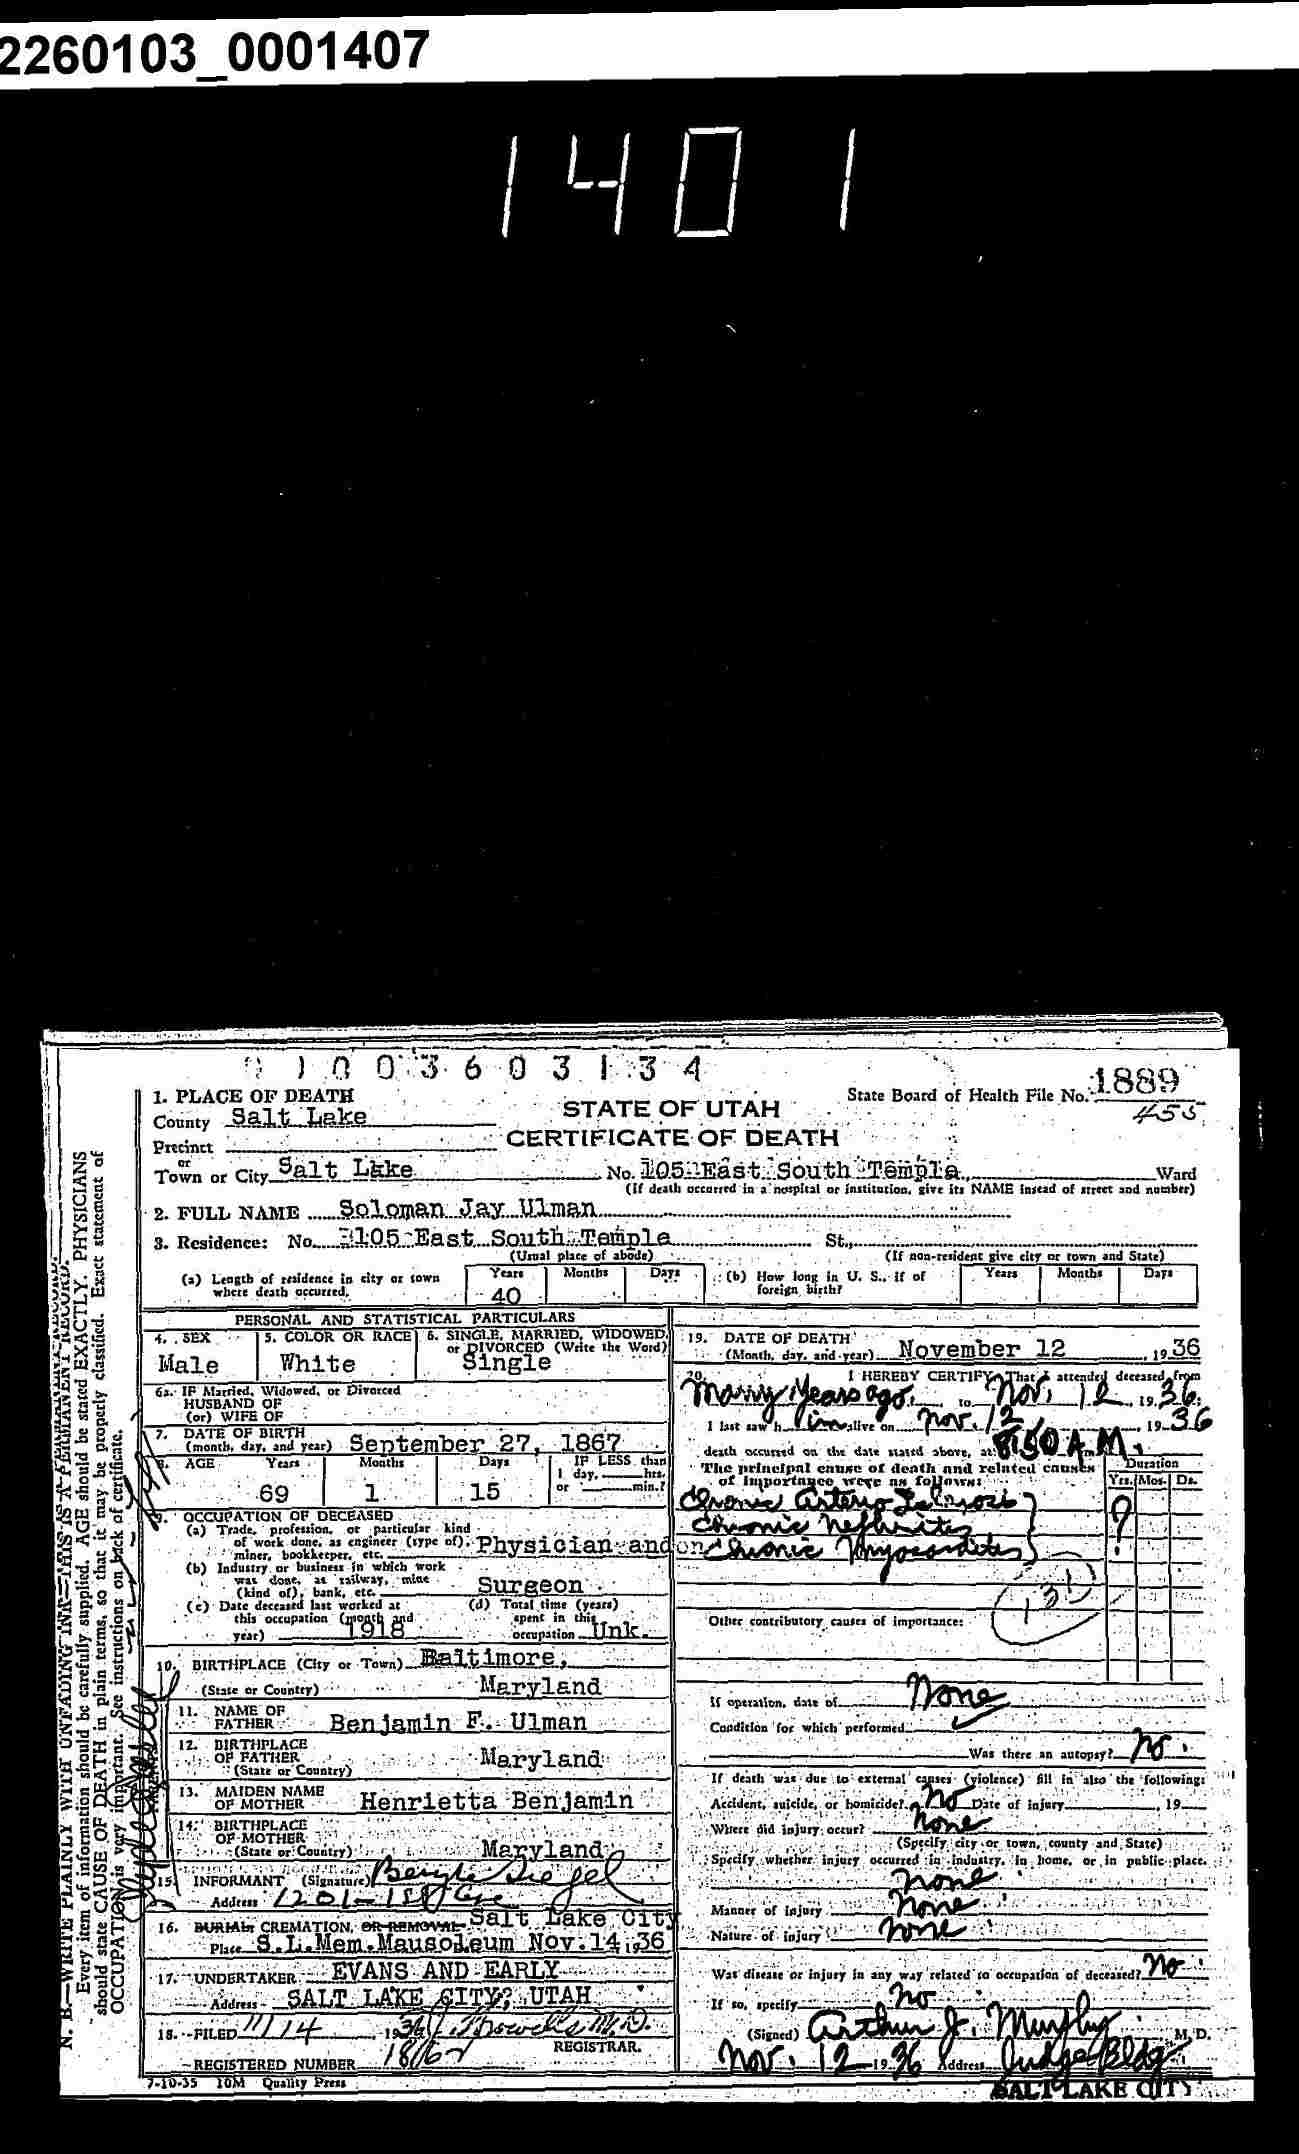 2260103_0001407
1401
1003603134
1. PLACE OF DEATH
County Salt Lake
STATE OF UTAH
CERTIFICATE OF DEATH
State Board of Health File No. 1889
455
Precinct
or
Town or City Salt Lake No. 1105 East South Temple Ward
(If death occurred in a hospital or institution, give its NAME instead of street and number)
2. FULL NAME Soloman Jay Ulman
3. Residence: No. 1105 East South Temple St.
(Usual place of abode) (If non-resident give city or town and State)
(a) Length of residence in city or town where death occurred. Years 40 Months Days
(b) How long in U. S., if of foreign birth? Years Months Days
PERSONAL AND STATISTICAL PARTICULARS
4. SEX 5. COLOR OR RACE 6. SINGLE, MARRIED, WIDOWED, or DIVORCED (Write the Word)
Male White Single
6a. IF Married, Widowed, or Divorced
HUSBAND OF
(or) WIFE OF
7. DATE OF BIRTH
(month, day, and year) September 27, 1867
8. AGE Years Months Days IF LESS than
1 day, hrs.
or min.?
69 1 15
9. OCCUPATION OF DECEASED
(a) Trade, profession, or particular kind
of work done, as engineer (type of),
miner, bookkeeper, etc. Physician and
(b) Industry or business in which work
was done, as railway, mine
(kind of), bank, etc. Surgeon
(c) Date deceased last worked at
this occupation (month and
year) 1918
(d) Total time (years)
spent in this
occupation Unk.
10. BIRTHPLACE (City or Town) Baltimore,
(State or Country) Maryland
11. NAME OF
FATHER Benjamin F. Ulman
12. BIRTHPLACE
OF FATHER
(State or Country) Maryland
13. MAIDEN NAME
OF MOTHER Henrietta Benjamin
14. BIRTHPLACE
OF MOTHER
(State or Country) Maryland
15. INFORMANT (Signature) Beryle Siegel
Address 1201-1st Ave
16. BURIAL, CREMATION, OR REMOVAL Salt Lake City
Place S.L.Mem.Mausoleum Nov.14, 36
17. UNDERTAKER EVANS AND EARLY
Address SALT LAKE CITY, UTAH
18. FILED 11/14 1936
REGISTRAR.
REGISTERED NUMBER 1862
7-10-35 10M Quality Press
19. DATE OF DEATH
(Month, day, and year) November 12, 1936
20. I HEREBY CERTIFY, That I attended deceased from
Many years ago, to Nov. 12, 1936.
I last saw him alive on Nov. 12, 1936
death occurred on the date stated above, at 8:50 A.M.
The principal cause of death and related causes
of importance were as follows:
Duration
Yrs. Mos. Ds.
Chronic Arterio Sclerosis
Chronic Nephritis
Chronic Myocarditis
?
131
Other contributory causes of importance:
If operation, date of None
Condition for which performed
Was there an autopsy? No.
If death was due to external causes (violence) fill in also the following:
Accident, suicide, or homicide? No Date of injury , 19
Where did injury occur? None
(Specify city or town, county and State)
Specify whether injury occurred in industry, in home, or in public place.
None
Manner of injury None
Nature of injury None
Was disease or injury in any way related to occupation of deceased? No.
If so, specify No
(Signed) Arthur J. Murphy M. D.
Nov. 12 1936 Address Judge Bldg
SALT LAKE CITY
N. B.—WRITE PLAINLY WITH UNFADING INK—THIS IS A PERMANENT RECORD.
Every item of information should be carefully supplied. AGE should be stated EXACTLY. PHYSICIANS
should state CAUSE OF DEATH in plain terms, so that it may be properly classified. Exact statement of
OCCUPATION is very important. See instructions on back of certificate.